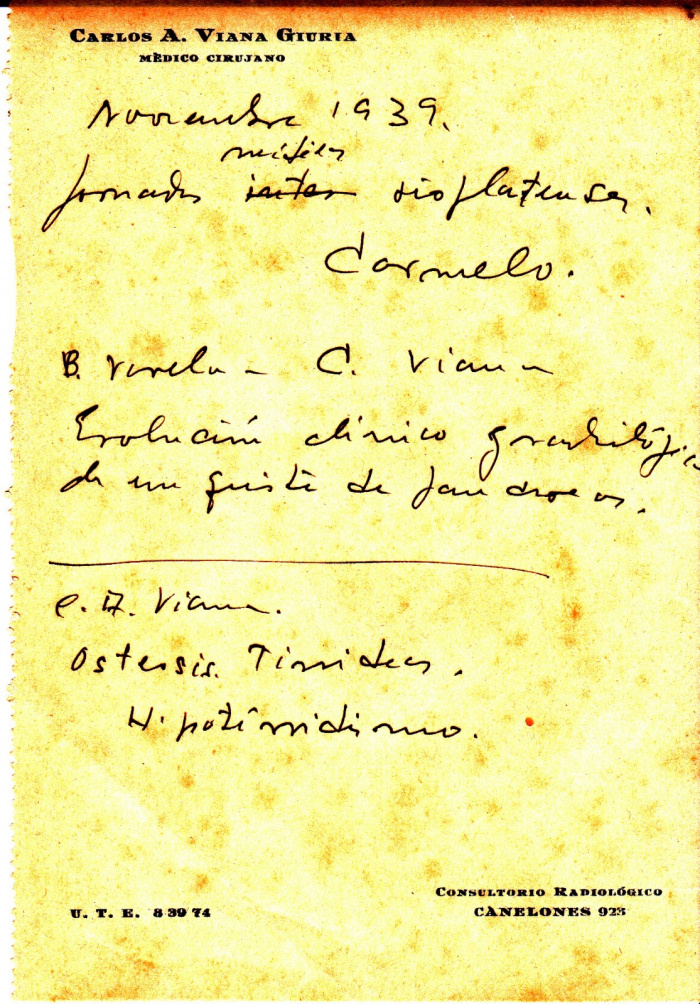 CARLOS A. VIANA GIURIA
MÉDICO CIRUJANO
Noviembre 1939.
médicas
Jornadas inter rioplatenses.
Carmelo.
B. Varela - C. Viana
Evolución clínico
de un quiste de
C. A. Viana.
Osteosis. Tiroideas.
Hipotiroidismo.
CONSULTORIO RADIOLÓGICO
U. T. E. 8 39 74
CANELONES 923